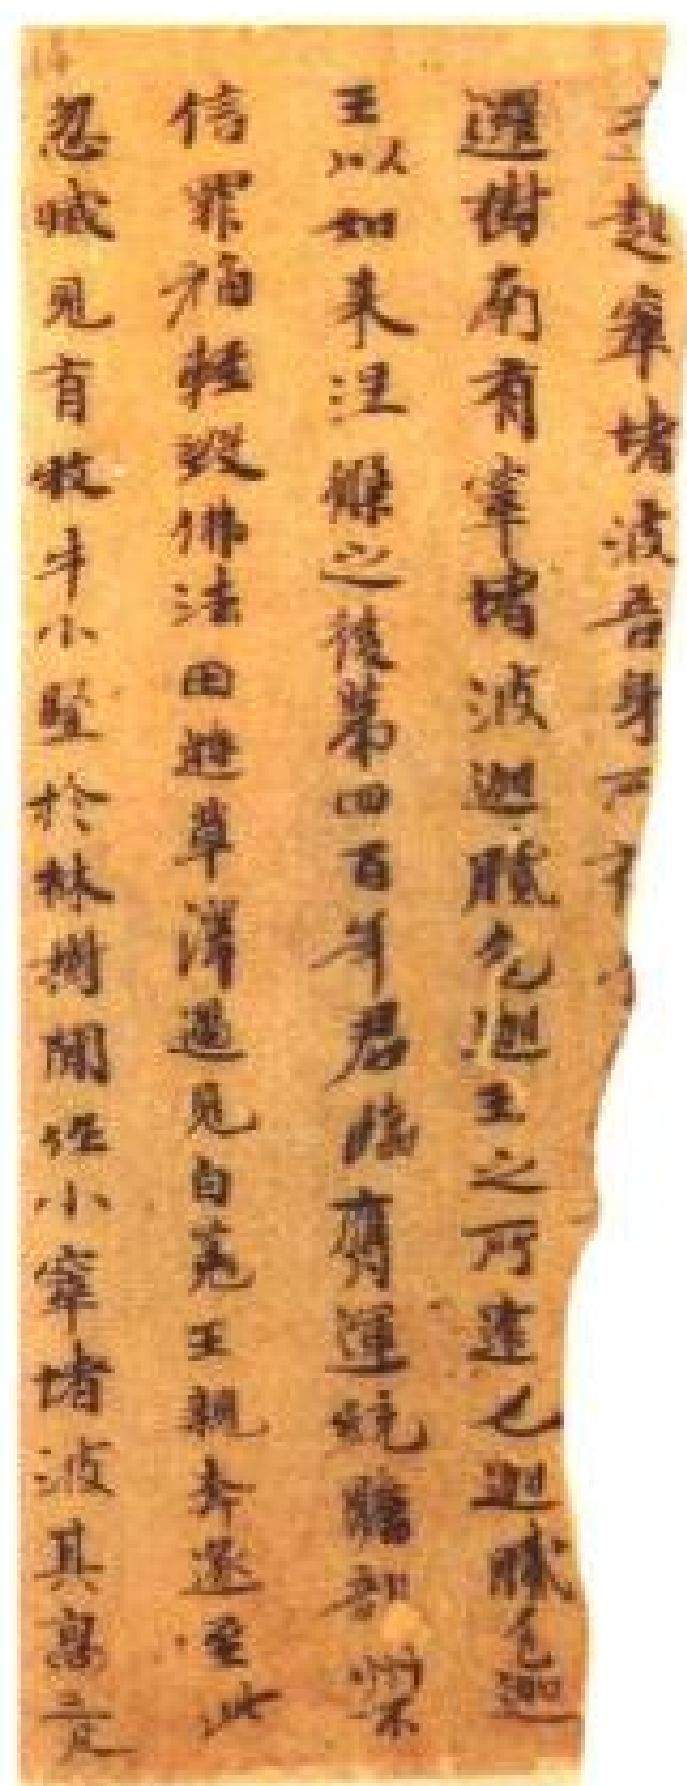 起窣堵波吾身所有
邏樹南有窣堵波迦膩色迦王之所建也迦膩色迦
王以如来涅槃之後第四百年君臨膺運統贍部洲不
信罪福輕毀佛法田遊草澤遇見白菟王親奔逐至此
忽滅見有牧牛小竪於林樹間作小窣堵波其高三尺